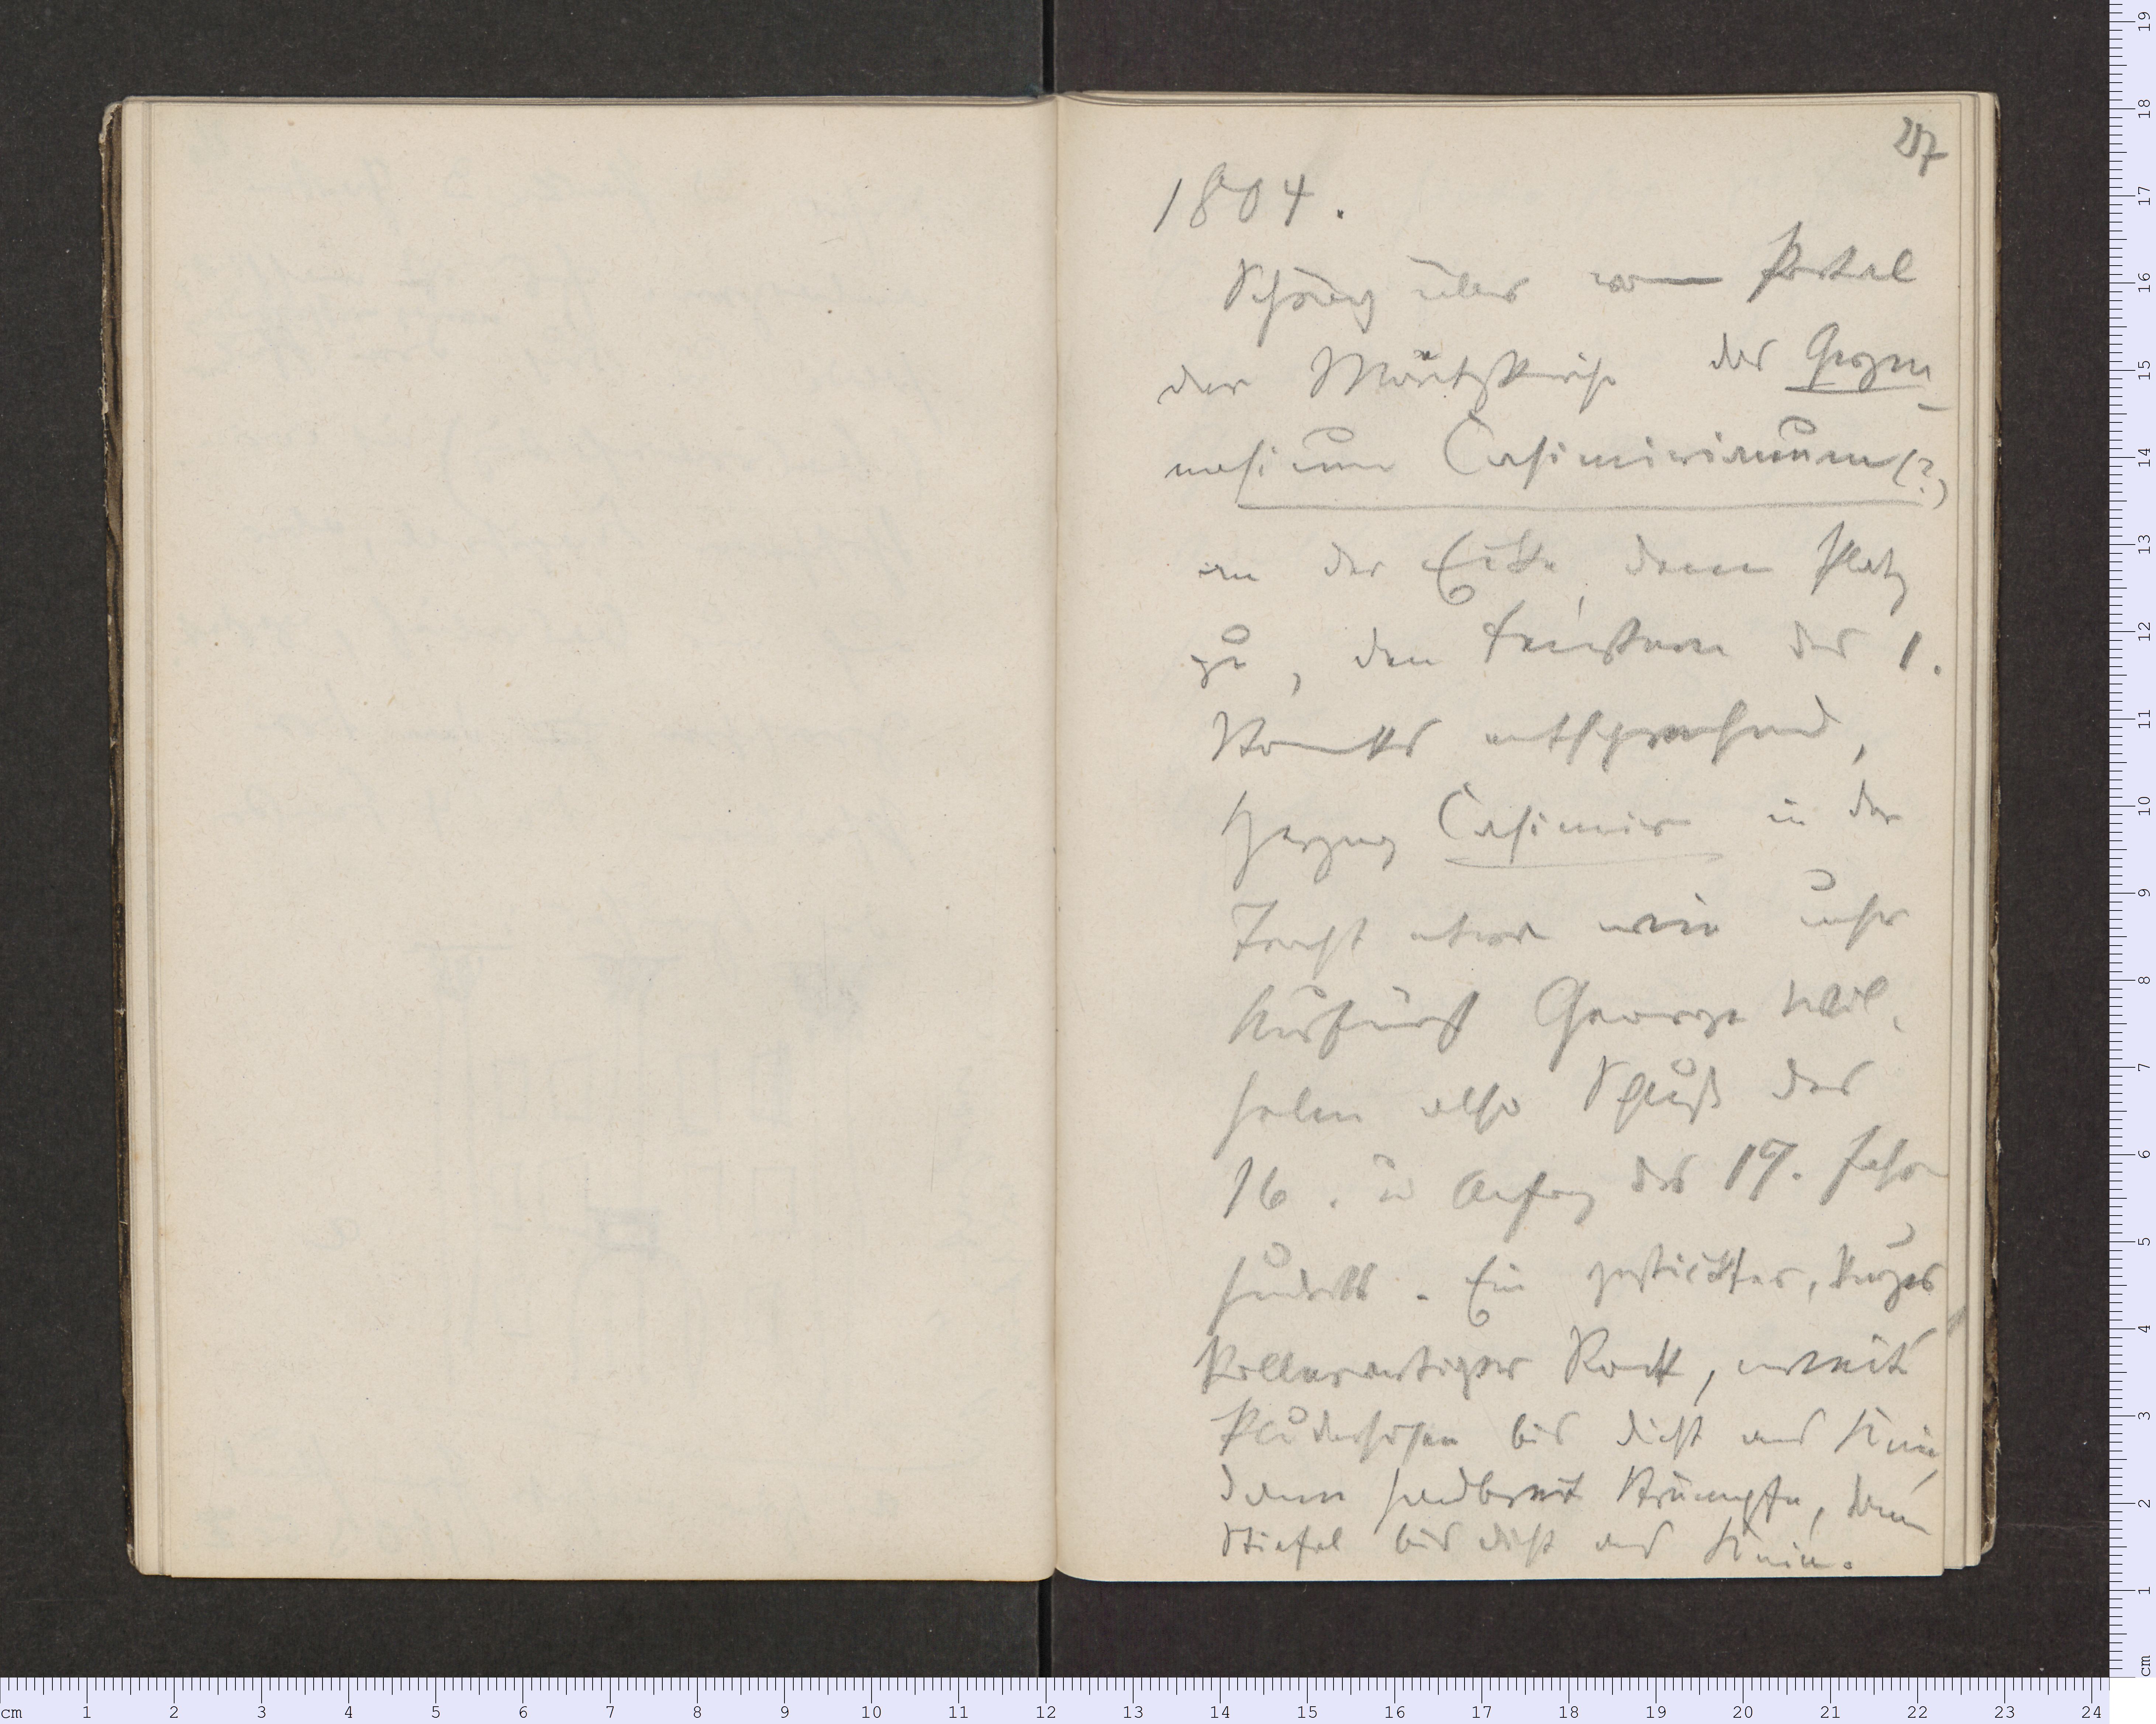 27
1804.
Schräg über vom Portal
der Moritzkirche das Gym-
nasium Casimirianum (?)
an der Ecke, dem Platz
zu, den Fenstern des 1.
Stocks entsprechend,
Herzog Casimir in der
Tracht etwa wie unser
Kurfürst George Wil-
helm also Schluß des
16. u Anfang des 17. Jahr
hunderts. Ein gestickter, kurzer
kollerartiger Rock, weit
Pluderhosen bis dicht ans Knie,
dann handbreit Strümpfe, dann
Stiefel bis dicht ans Knie.